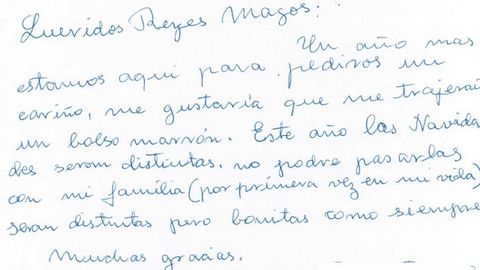 Queridos Reyes Magos:
Un año mas
estamos aqui para pediros un
cariño, me gustaría que me trajerai
un bolso marrón. Este año las Navida
des seran distintas, no podre pasarlas
con mi familia (por primera vez en mi vida)
seran distintas pero bonitas como siempre
Muchas gracias.